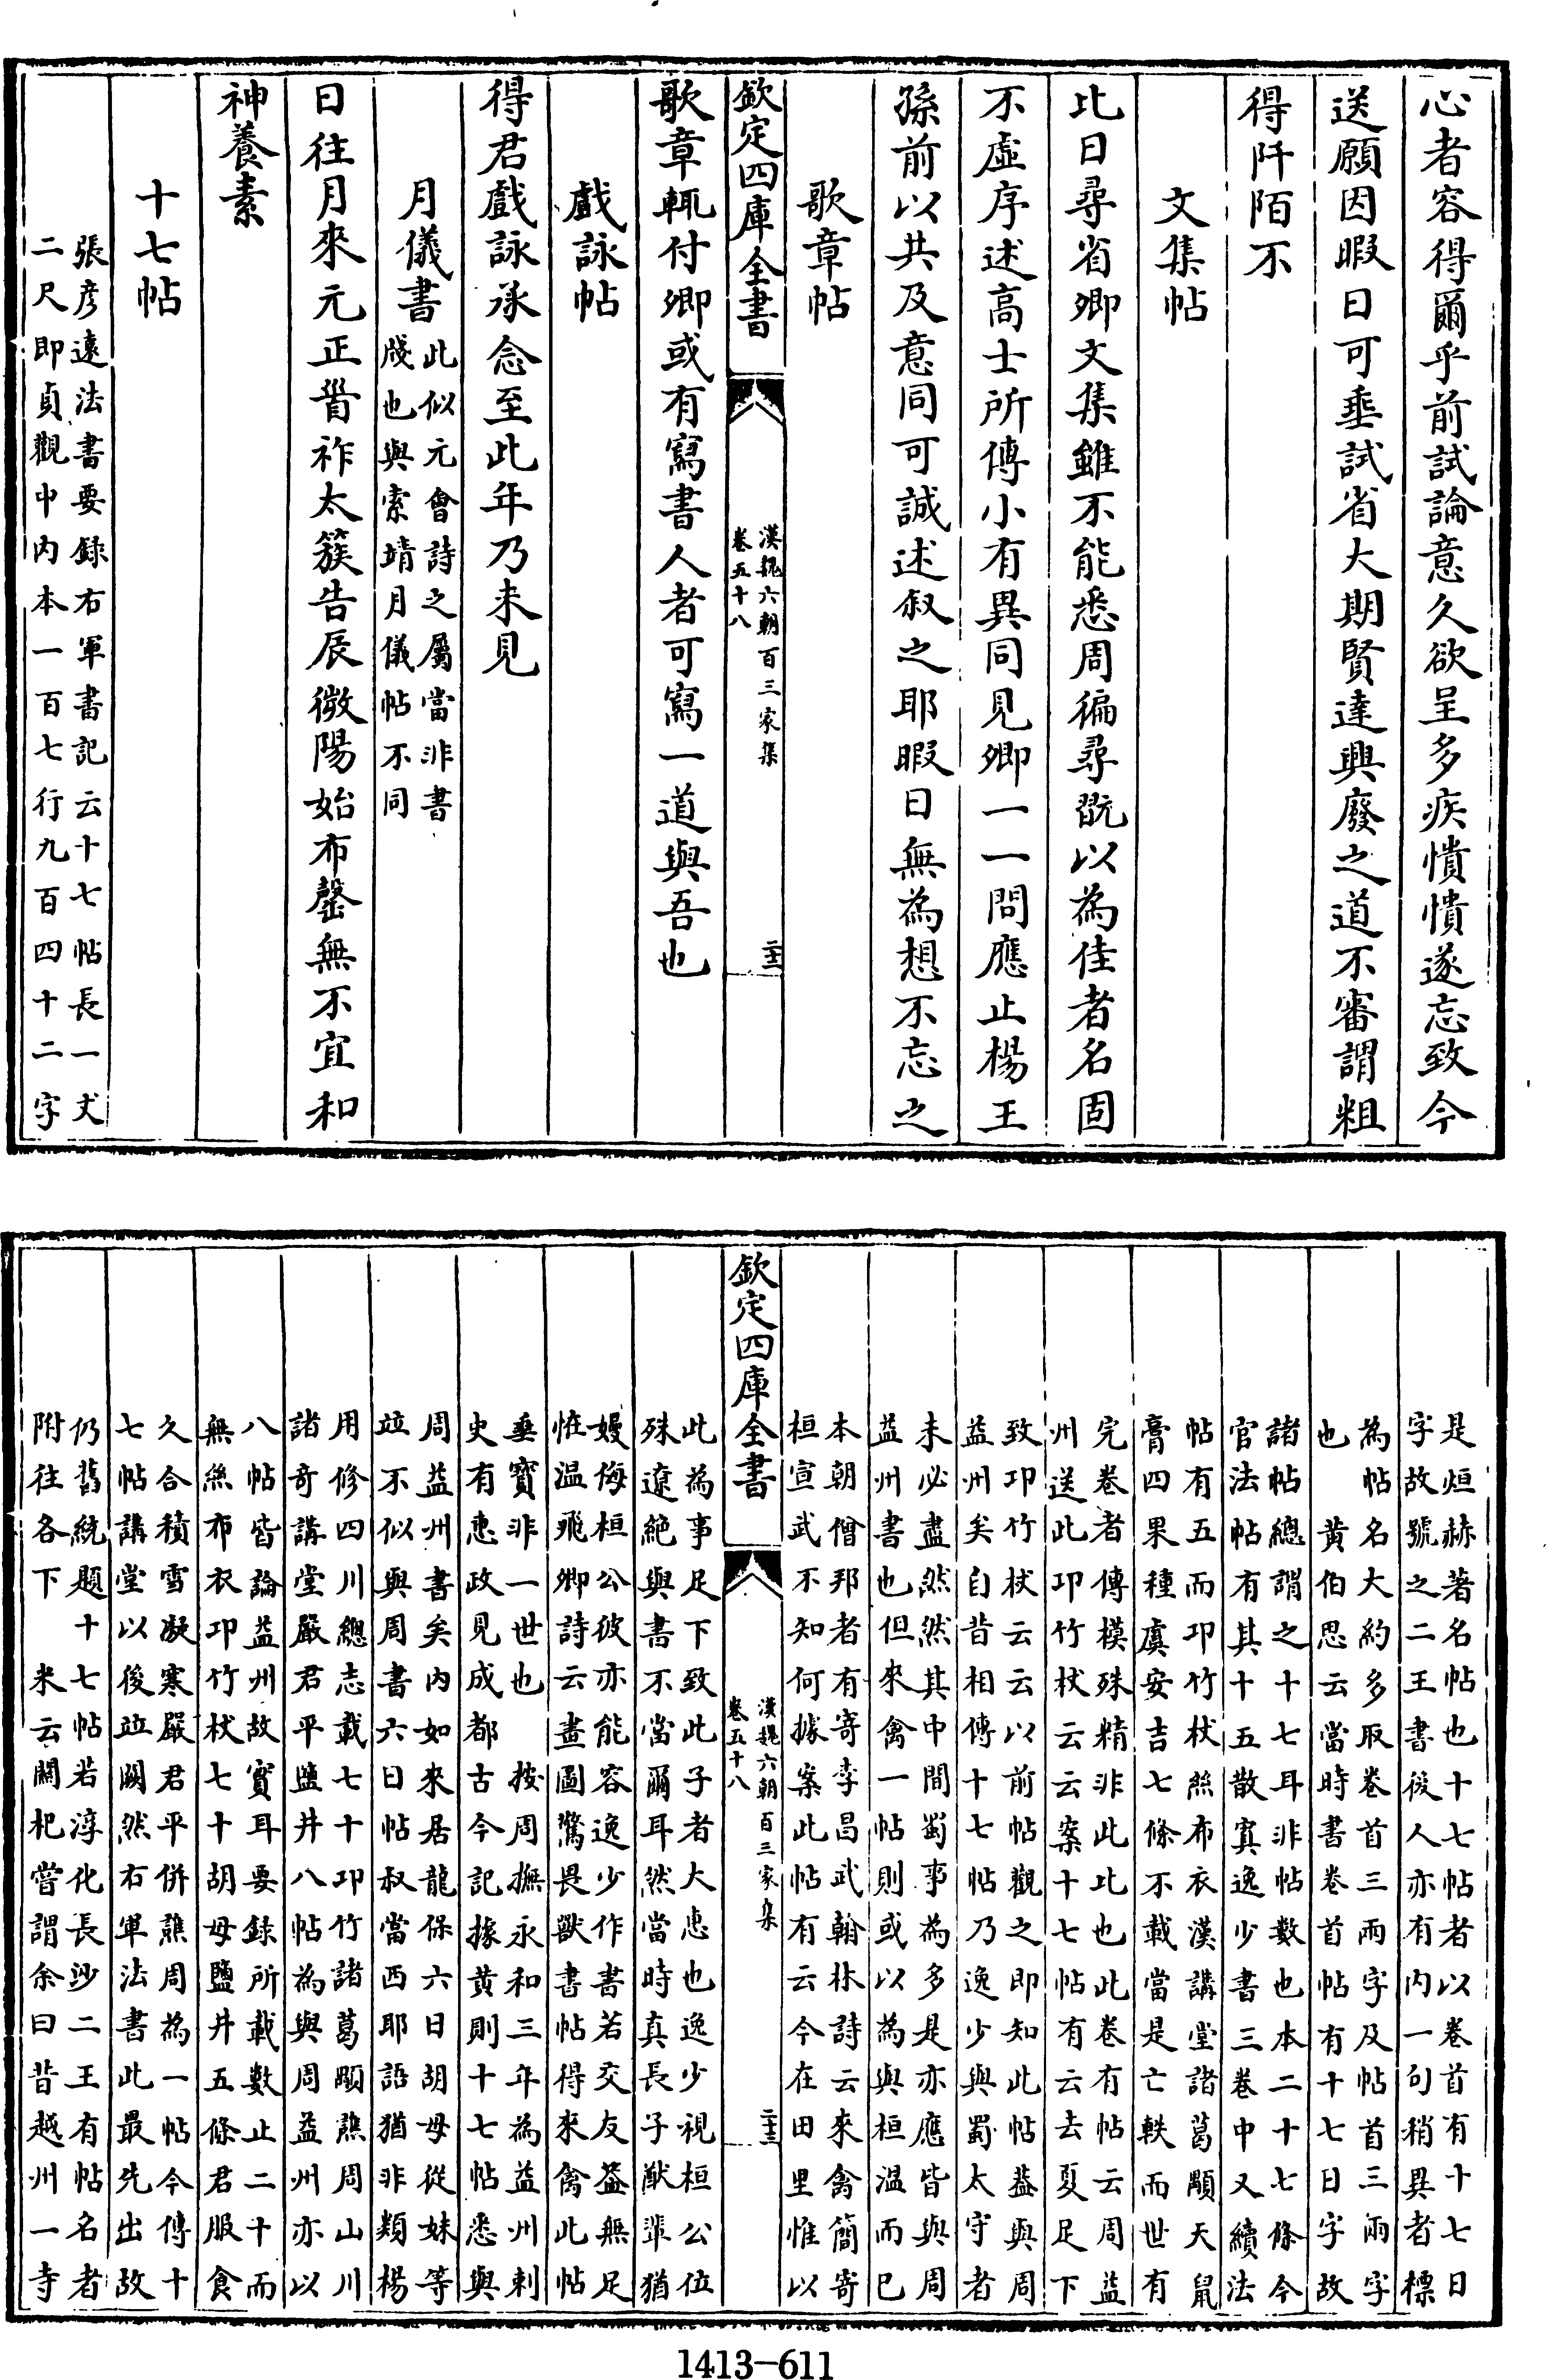 心者容得爾乎前試論意久欲呈多疾憒憒遂忘致今
送願因暇日可垂試省大期賢達興廢之道不審謂粗
得阡陌不
文集帖
此日尋省卿文集雖不能悉周徧尋翫以為佳者名固
不虛序述高士所傳小有異同見卿一一問應止楊王
孫前以共及意同可誠述叙之耶暇日無為想不忘之
歌章帖
欽定四庫全書
漢魏六朝百三家集
卷五十八
二十二
歌章輒付卿或有寫書人者可寫一道與吾也
戲詠帖
得君戲詠承念至此年乃未見
月儀書
此似元會詩之屬當非書
牋也與索靖月儀帖不同
日往月來元正首祚太簇告辰微陽始布罄無不宜和
神養素
十七帖
張彦遠法書要録右軍書記云十七帖長一丈
二尺即貞觀中内本一百七行九百四十二字
是烜赫著名帖也十七帖者以卷首有十七日
字故號之二王書後人亦有内一句稍異者標
為帖名大約多取卷首三兩字及帖首三兩字
也 黄伯思云當時書卷首帖有十七日字故
諸帖總謂之十七耳非帖數也本二十七條今
官法帖有其十五散寘逸少書三卷中又續法
帖有五而卭竹杖絲布衣漢講堂諸葛顒天鼠
膏四果種虞安吉七條不載當是亡軼而世有
完卷者傳模殊精非此比也此卷有帖云周益
州送此卭竹杖云云案十七帖有云去夏足下
致卭竹杖云云以前帖觀之即知此帖葢與周
益州矣自昔相傳十七帖乃逸少與蜀太守者
未必盡然然其中間蜀事為多是亦應皆與周
益州書也但來禽一帖則或以為與桓温而已
本朝僧邦者有寄李昌武翰林詩云來禽簡寄
桓宣武不知何據案此帖有云今在田里惟以
欽定四庫全書
漢魏六朝百三家集
卷五十八
二十三
此為事足下致此子者大惠也逸少視桓公位
殊遼絶與書不當爾耳然當時真長子猷輩猶
嫚侮桓公彼亦能容逸少作書若交友葢無足
恠温飛卿詩云畫圖驚畏獸書帖得來禽此帖
垂寶非一世也 按周撫永和三年為益州刺
史有惠政見成都古今記據黄則十七帖悉與
周益州書矣内如來居龍保六日胡母從妹等
竝不似與周書六日帖叔當西耶語猶非類楊
用修四川總志載七十卭竹諸葛顒譙周山川
諸奇講堂嚴君平鹽井八帖為與周益州亦以
八帖皆論益州故實耳要録所載數止二十而
無絲布衣卭竹杖七十胡母鹽井五條君服食
久合積雪凝寒嚴君平併譙周為一帖今傳十
七帖講堂以後竝闕然右軍法書此最先出故
仍舊統題十七帖若淳化長沙二王有帖名者
附往各下 米云關杞嘗謂余曰昔越州一寺
1413-611